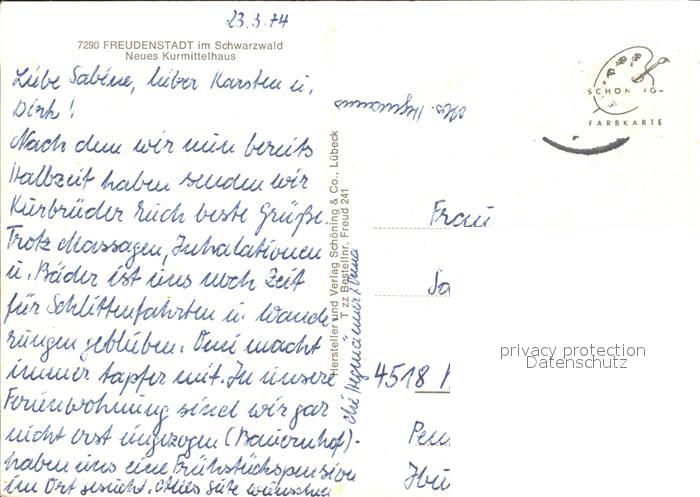 23.3.74
7290 FREUDENSTADT im Schwarzwald
Neues Kurmittelhaus
Liebe Sabine, lieber Karsten u.
Dirk!
Nach dem wir nun bereits
Halbzeit haben senden wir
Kurbrüder Euch beste Grüße.
Trotz Massagen, Inhalationen
u. Bäder ist uns noch Zeit
für Schlittenfahrten u. Wande-
rungen geblieben. Omi macht
immer tapfer mit. In unsere
Ferienwohnung sind wir gar
nicht erst eingezogen (Bauernhof).
haben uns eine Frühstückspension
im Ort gesucht. Alles Gute wünschen
Hersteller und Verlag Schöning & Co., Lübeck
T zz Bestellnr. Freud 241
SCHÖNING-
FARBKARTE
Frau
4518
privacy protection
Datenschutz